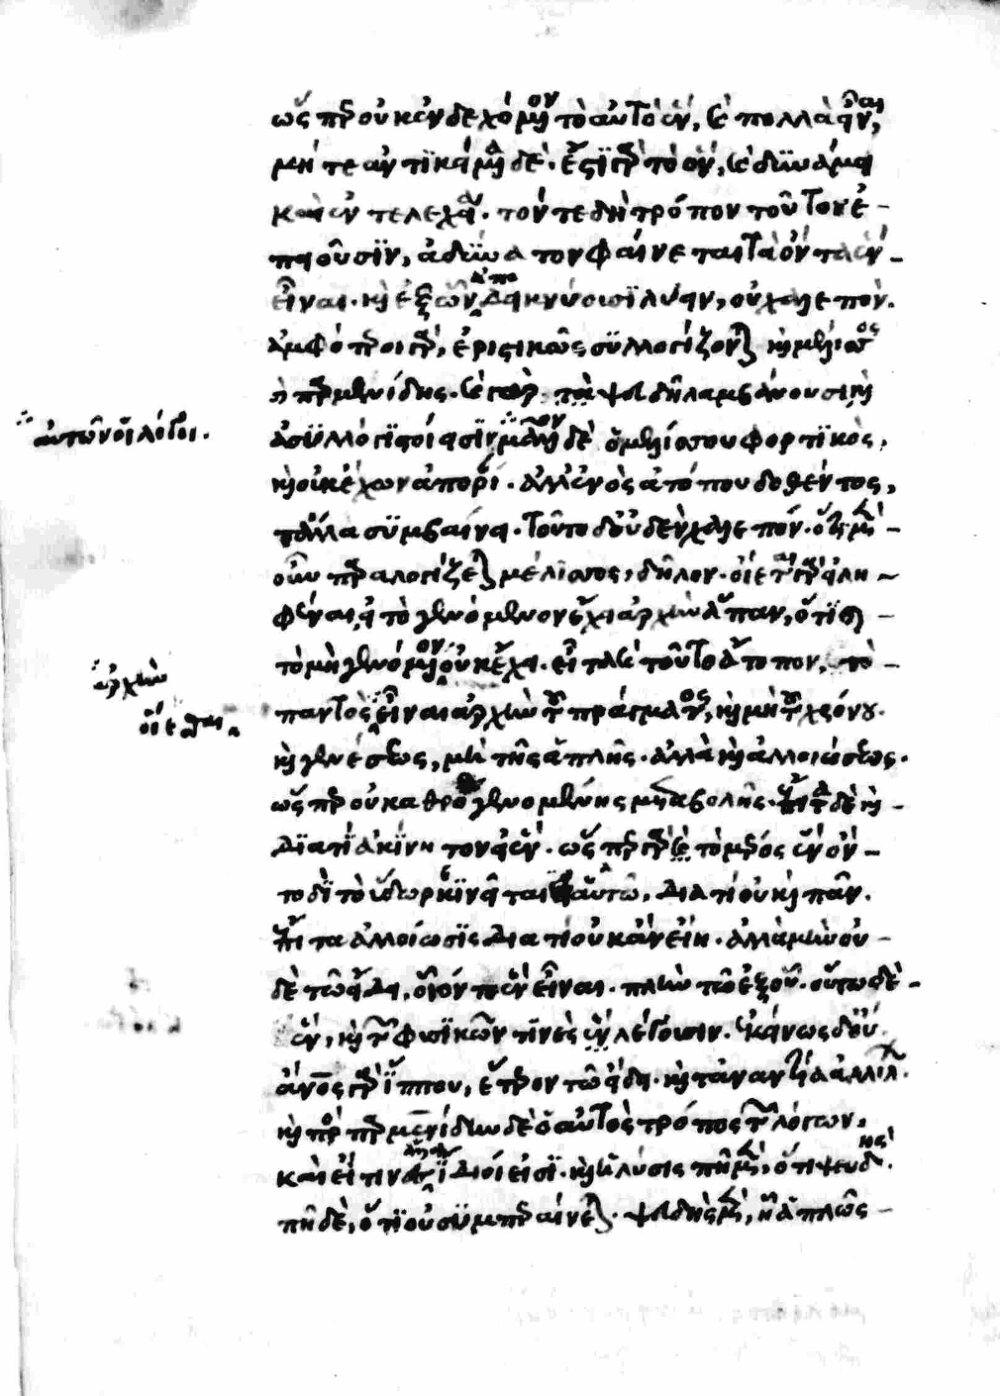 ὥσπερ οὐκ ἐνδεχόμενον τὸ αὐτὸ ἓν, καὶ πολλὰ εἶναι,
μήτε ἀντικείμενα δέ. ἔστι γὰρ τὸ ὂν, καὶ δυνάμει
καὶ ἐντελεχείᾳ. τόν τε δὴ τρόπον τοῦτον ἐ-
πιοῦσιν, ἀδύνατον φαίνεται τὰ ὄντα ἓν
εἶναι. καὶ ἐξ ὧν ἐπιδεικνύουσι λύειν, οὐ χαλεπόν.
ἀμφότεροι γὰρ, ἐριστικῶς συλλογίζονται καὶ μέλισσος
καὶ παρμενίδης. καὶ γὰρ ψευδῆ λαμβάνουσι καὶ
∴ αὐτῶν οἱ λόγοι.
ἀσυλλόγιστοί εἰσιν ∴ μᾶλλον δὲ ὁ μελίσσου φορτικὸς,
καὶ οὐκ ἔχων ἀπορίαν. ἀλλ' ἑνὸς ἀτόπου δοθέντος,
τἄλλα συμβαίνει. τοῦτο δ' οὐδὲν χαλεπόν. ὅτι μὲν
οὖν παραλογίζεται μέλισσος, δῆλον. οἴεται γὰρ εἰλη
φέναι, εἰ τὸ γενόμενον ἔχει ἀρχὴν ἅπαν, ὅτι καὶ
τὸ μὴ γενόμενον οὐκ ἔχει. εἶτα καὶ τοῦτο ἄτοπον, τὸ
∴ ἀρχὴν
οἴεται
παντὸς εἶναι ἀρχὴν τοῦ πράγματος, καὶ μὴ τοῦ χρόνου.
καὶ γενέσεως, μὴ τῆς ἁπλῆς. ἀλλὰ καὶ ἀλλοιώσεως.
ὥσπερ οὐκ ἀθρόας γενομένης μεταβολῆς. ἔπειτα δὲ καὶ
διατί ἀκίνητον εἰ ἕν. ὥσπερ γὰρ καὶ τὸ μέρος ἓν ὂν
τοδὶ τὸ ὕδωρ κινεῖται ἐν ἑαυτῷ, διατί οὐ καὶ πᾶν.
ἔπειτα ἀλλοίωσις διατί οὐκ ἂν εἴη. ἀλλὰ μὴν οὐ-
δὲ τῷ εἴδει, οἷόν τε ἓν εἶναι. πλὴν τῷ ἐξ οὗ. οὕτω δὲ
ἓν, καὶ τῶν φυσικῶν τινὲς ἓν λέγουσιν. ἐκείνως δ' οὔ.
ἄνος γὰρ ἵππου, ἕτερον τῷ εἴδει. καὶ τἀναντία ἀλλήλων.
καὶ πρὸς παρμενίδην δὲ ὁ αὐτὸς τρόπος τῶν λόγων,
καὶ εἴ τινες ἄλλοι ἴδιοί εἰσι. καὶ ἡ λύσις πῆ μὲν, ὅτι ψευδής.
πῆ δὲ, ὅτι οὐ συμπεραίνεται. ψευδὴς μὲν, ᾗ ἁπλῶς